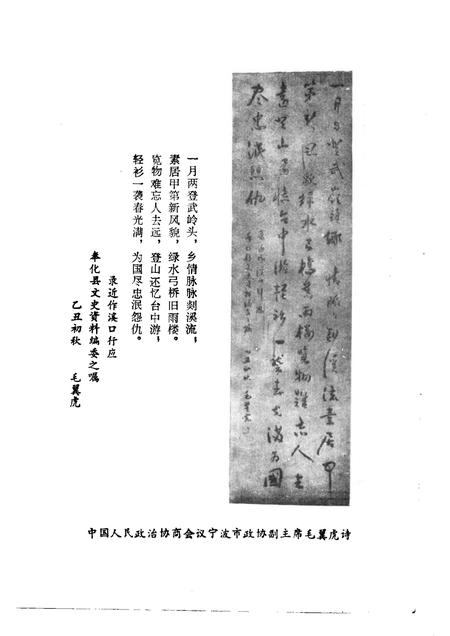 一月与登武岭头乡情脉脉剡溪流素居甲
第新风貌绿水弓桥旧雨楼览物难忘人去
远登山还忆台中游轻衫一袭春光满为国
尽忠泯怨仇
一月两登武岭头，乡情脉脉剡溪流；
素居甲第新风貌，绿水弓桥旧雨楼。
览物难忘人去远，登山还忆台中游；
轻衫一袭春光满，为国尽忠泯怨仇。
录近作溪口行应
奉化县文史资料编委之嘱
乙丑初秋　毛翼虎
中国人民政治协商会议宁波市政协副主席毛翼虎诗